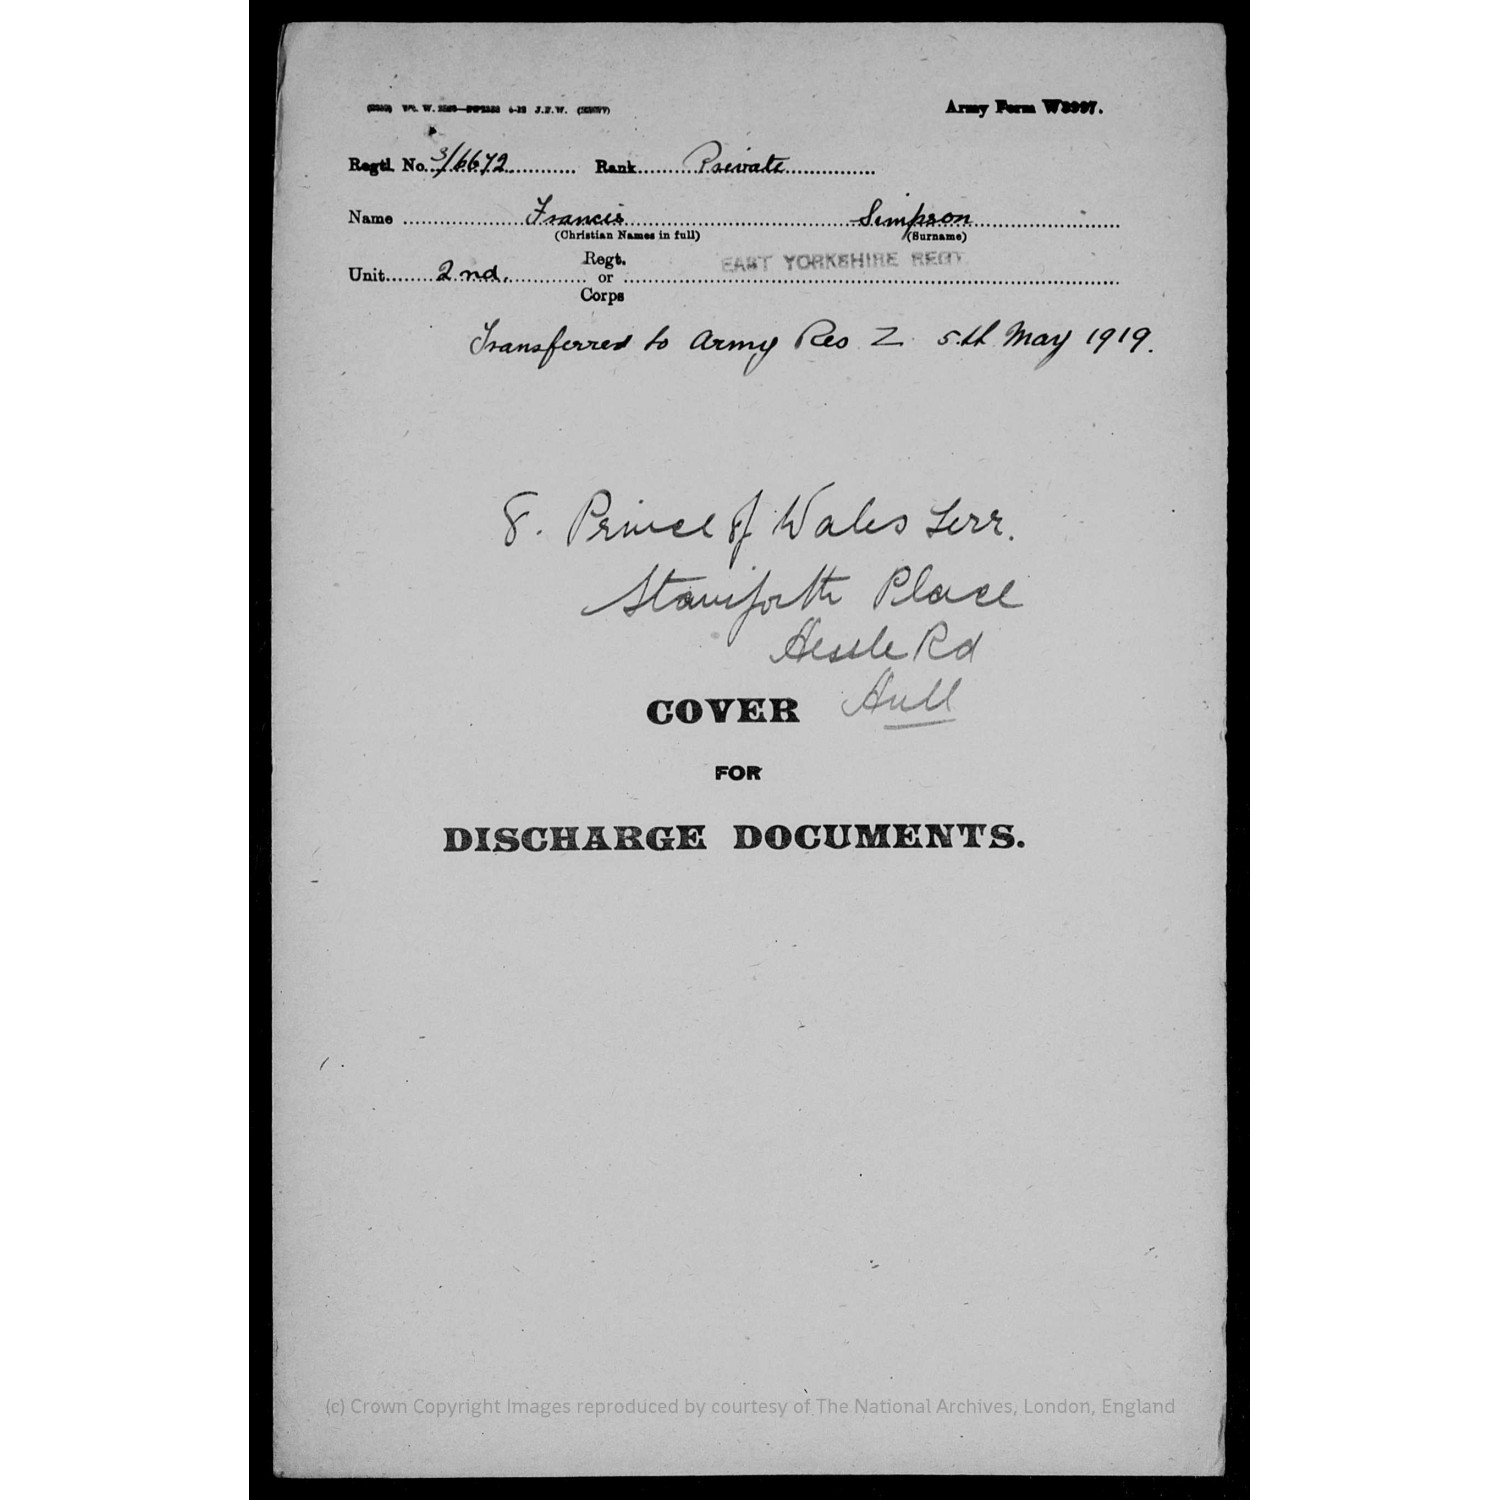 Army Form W3997.
Regtl. No. 3/6672 Rank Private
Name Francis Simpson
(Christian Names in full) (Surname)
Unit 2nd. Regt. or Corps EAST YORKSHIRE REGT
Transferred to Army Res Z 5th May 1919.
8. Prince of Wales Terr.
Staniforth Place
Hessle Rd
Hull
COVER
FOR
DISCHARGE DOCUMENTS.
(c) Crown Copyright Images reproduced by courtesy of The National Archives, London, England